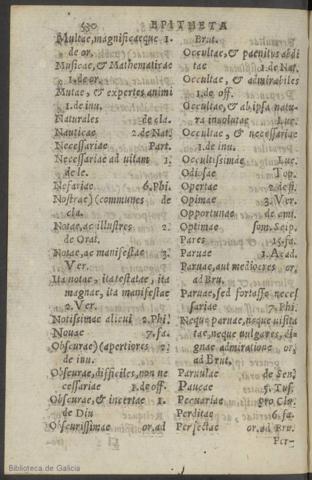 430 EPITHETA
Multae, magnificaeque 1.
de or.
Musicae, & Mathematicae
1. de or.
Mutae, & expertes animi
1. de inu.
Naturales de cla.
Nauticae 2. de Nat.
Necessariae Part.
Necessariae ad uitam 1.
de le.
Nefariae 6. Phi.
Nostrae) (communes de
cla.
Notae, ac illustres 2.
de Orat.
Notae, ac manifestae 3.
Ver.
Ita notae, ita testatae, ita
magnae, ita manifestae
2. Ver.
Notissimae alicui 2. Phi.
Nouae 7. fa.
Obscurae) (apertiores 2.
de inu.
Obscurae, difficiles, non ne
cessariae 1. de off.
Obscurae, & incertae 1.
de Diu
Obscurissimae or. ad
Brut.
Occultae, & paenitus abdi
tae 1. de Nat.
Occultae, & admirabiles
1. de off.
Occultae, & ab ipsa natu-
ra inuolutae Luc.
Occultae, & necessariae
1. de inu.
Occultissimae Luc.
Odiosae Top.
Opertae 2. de fi.
Opimae 3. Ver.
Opportunae de ami.
Optimae som. Scip.
Pares 15. fa.
Paruae 1. Acad.
Paruae, aut mediocres or.
ad Bru.
Paruae, sed fortasse necess
sariae 7. Phi.
Neque paruae, neque usita
tae, neque uulgares,
gnae admiratione or.
ad Brut.
Paruulae de Sen.
Paucae 5. Tus.
Pecuariae pro Clu.
Perditae 6. fa.
Perfectae or. ad Bru.
Per-
Biblioteca de Galicia